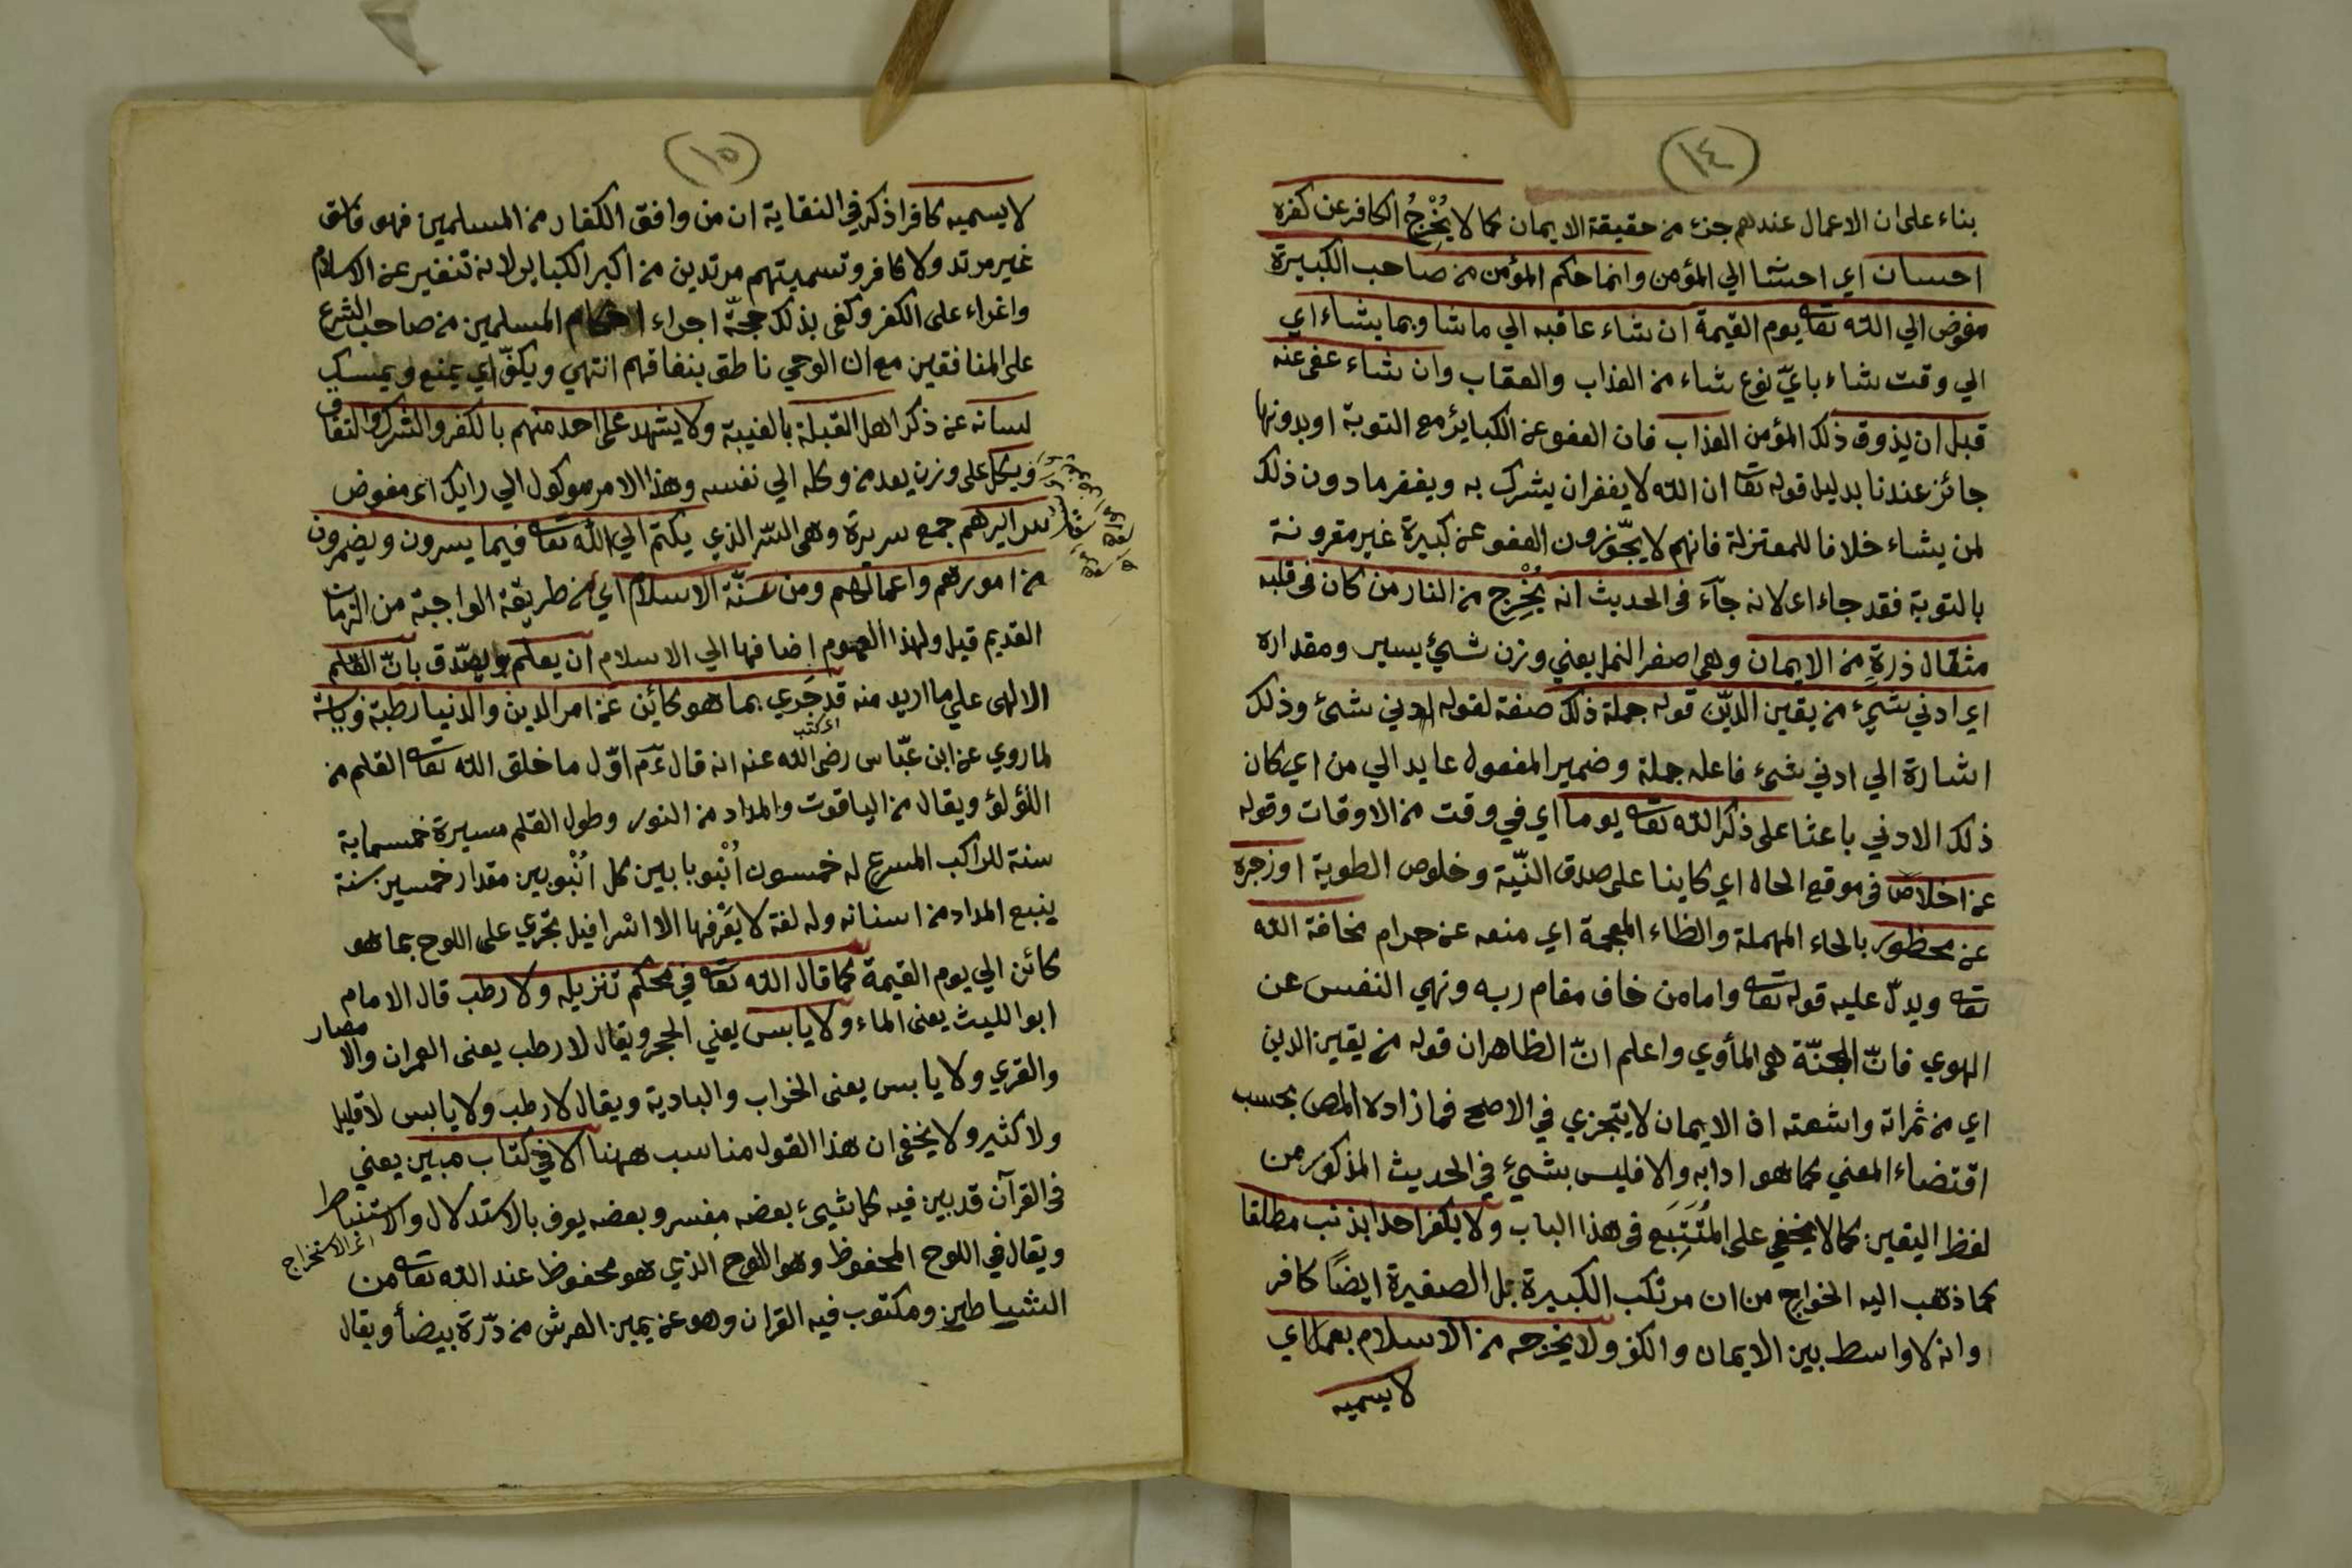 (١٤)
بناء على ان الاعمال عندهم جزء من حقيقة الايمان كما لا يُخْرِجُ الكافر عن كفره
احسان اي احسانا الي المؤمن وانما حكم المؤمن من صاحب الكبيرة
مفوض الي الله تعا يوم القيمة ان شاء عاقبه الي ما شا وبما يشاء اي
الي وقت شاء بايّ نوع شاء من العذاب والعقاب وان شاء عفى عنه
قبل ان يذوق ذلك المؤمن العذاب فان العفو عن الكبائر مع التوبة او بدونها
جائز عندنا بدليل قوله تعا ان الله لا يغفر ان يشرك به ويغفر ما دون ذلك
لمن يشاء خلافا للمعتزلة فانهم لا يجّوزون العفو عن كبيرة غير مقرونة
بالتوبة فقد جاء اى لانه جآء فى الحديث انه يُخْرِج من النار من كان فى قلبه
مثقال ذرةٍ من الايمان وهى اصغر النمل يعني وزن شيئ يسير ومقداره
اي ادني شيء من يقين الدّين قوله جملة ذلك صفة لقوله ادني شئ وذلك
اشارة الي ادني شئ فاعله جملة وضمير المفعول عايد الي من اي كان
ذلك الادني باعثا على ذكر الله تعا يوما اي في وقت من الاوقات وقوله
عن اخلاص فى موقع الحال اي كاينا على صدق النّية وخلوص الطوية او زجره
عن محظور بالحاء المهملة والظاء المعجمة اي منعه عن حرام مخافة الله
تعا ويدلّ عليه قوله تعا واما من خاف مقام ربه ونهي النفس عن
الهوي فانّ الجنّة هى المأوي واعلم انّ الظاهر ان قوله من يقين الدين
اي من ثمراته واشعته اذ الايمان لا يتجزي في الاصح فما زاده المص بحسب
اقتضاء المعني كما هو ادابه والا فليس بشيئ في الحديث المذكور من
لفظ اليقين كما لا يخفي على المُتَتِبَع فى هذا الباب ولا يكفر احدا بذنب مطلقا
كما ذهب اليه الخوارج من ان مرتكب الكبيرة بل الصغيرة ايضًا كافر
وانه لا واسط بين الايمان والكفر ولا يخرجه من الاسلام بعمل اي
لا يسميه
(١٥)
لا يسميه كافرا ذكر في النقاية ان من وافق الكفار من المسلمين فهو فاسق
غير مرتد ولا كافر وتسميتهم مرتدين من اكبر الكباير لانه تنفير عن الاسلام
واغراء على الكفر وكفى بذلك حجّة اجراء احكام المسلمين من صاحب الشرع
على المنافقين مع ان الوحي ناطق بنفاقهم انتهي ويكفّ اي يمنع ويمسك
لسانه عن ذكر اهل القبلة بالغيبة ولا يشهد على احد منهم بالكفر والشرك والنفاق
ويكل على وزن يعد من وكله الي نفسه وهذا الامر موكول الي رايك اى مفوض
سرايرهم جمع سريرة وهى السّر الذي يكتم الي الله تعا فيما يسرون ويضمرون
من امورهم واعمالهم ومن سنّة الاسلام اي من طريقة الواجبة من الزمان
القديم قيل ولهذا العموم اضافها الي الاسلام ان يعلم ويصّدق بانّ القلم
الالهى علي ما اريد منه قد جَري بما هو كائن من امر الدين والدنيا رطبة ويابسة
اى كتب
لما روي عن ابن عبّاس رضى الله عنه انه قال عم اوّل ما خلق الله تعا القلم من
اللؤلؤ ويقال من الياقوت والمداد من النور وطول القلم مسيرة خمسماية
سنة للراكب المسرع له خمسون اُنْبوبا بين كل اُنْبوبين مقدار خمسين سنة
ينبع المداد من اسنانه وله لغة لا يَعْرفها الا اسْرافيل تجري على اللوح بما هو
كائن الي يوم القيمة كما قال الله تعا في محكم تنزيله ولا رطب قال الامام
ابو الليث يعنى الماء ولا يابس يعني الحجر ويقال لا رطب يعنى العمران والامصار
والقري ولا يابس يعنى الخراب والبادية ويقال لا رطب ولا يابس لا قليل
ولا كثير ولا يخفى ان هذا القول مناسب ههنا الا في كتاب مبين يعني
فى القرآن قد بين فيه كل شيئ بعضه مفسر وبعضه يعرف بالاستدلال والاستنباط
اى الاستخراج
ويقال في اللوح المحفوظ وهو اللوح الذي هو محفوظ عند الله تعا من
الشياطين ومكتوب فيه القران وهو عن يمين العرش من دّرة بيضأ ويقال